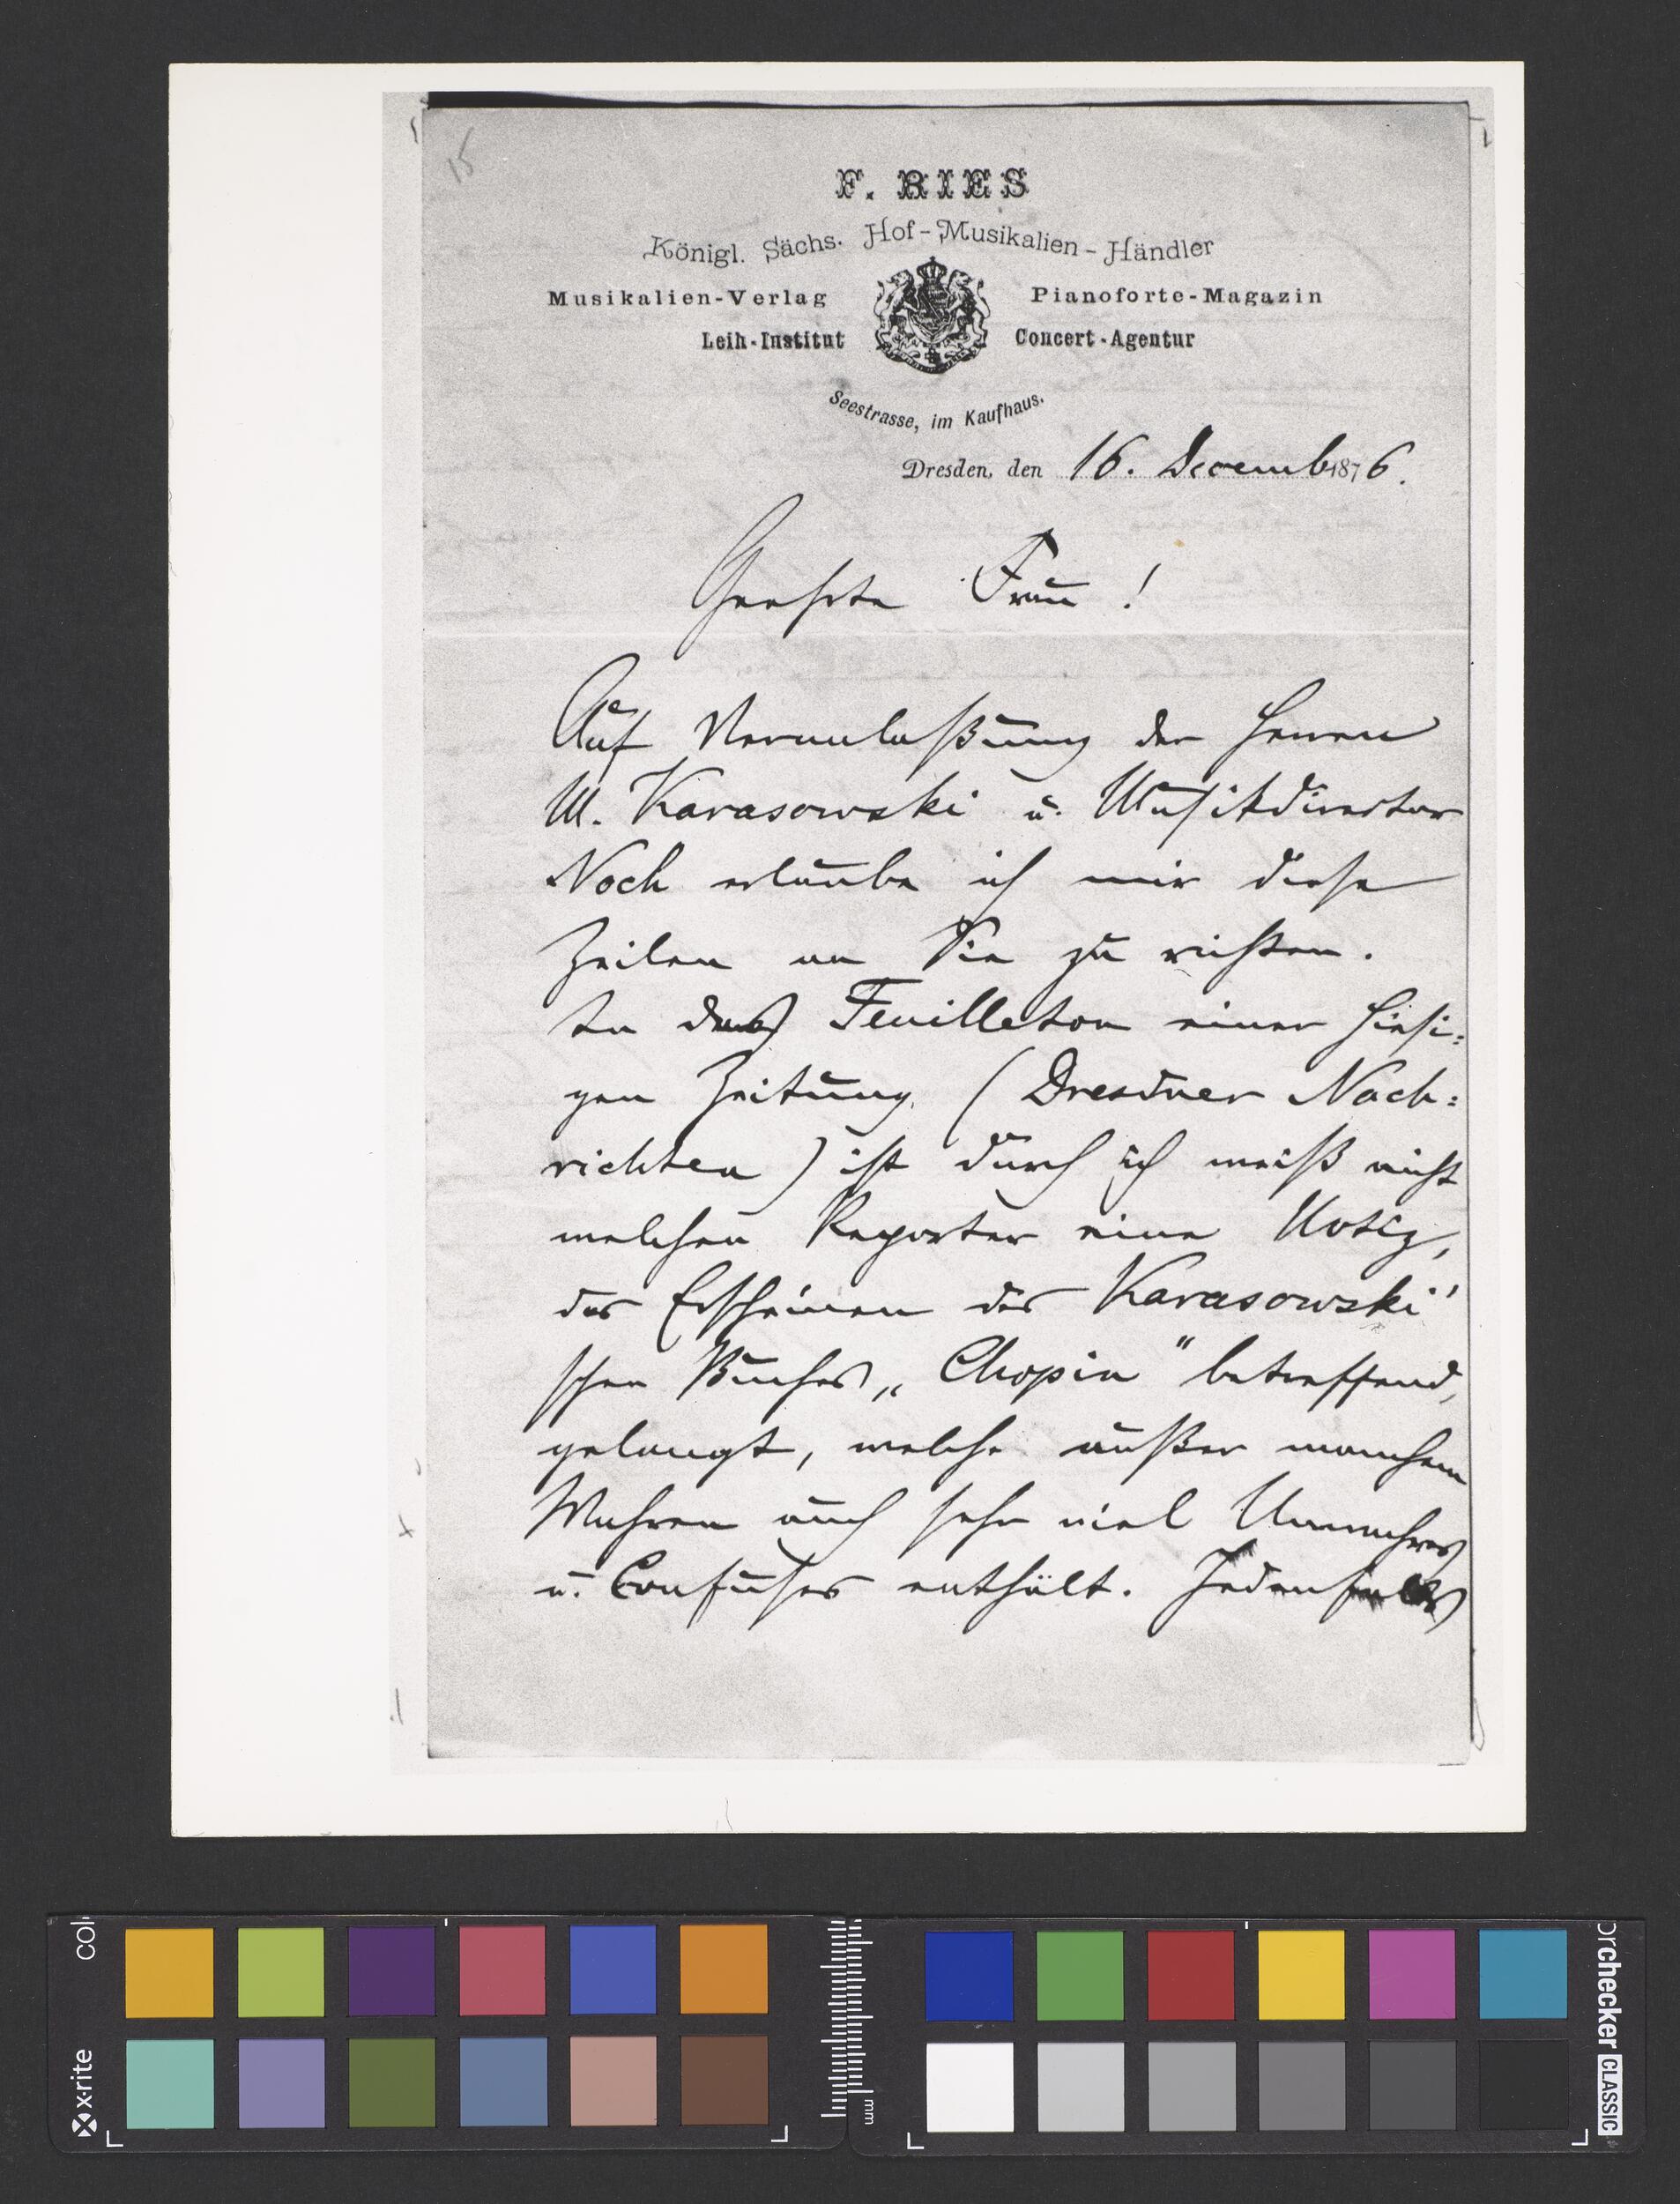 15
F. RIES
Königl. Sächs. Hof-Musikalien-Händler
Musikalien-Verlag Pianoforte-Magazin
Leih-Institut Concert-Agentur
Seestrasse, im Kaufhaus.
Dresden, den 16. Decemb 1876.
Geehrte Frau!
Auf Veranlaßung der Herren
M. Karasowski u. Musikdirector
Noch erlaube ich mir diese
Zeilen an Sie zu richten.
In das Feuilleton einer hiesi=
gen Zeitung (Dresdner Nach=
richten) ist durch ich weiß nicht
welchen Reporter eine Notiz,
das Erscheinen des Karasowski'
schen Buches „Chopin" betreffend,
gelangt, welche außer manchem
Wahren auch sehr viel Unwahres
u. Confuses enthält. Jedenfalls
x-rite
colorchecker CLASSIC
mm